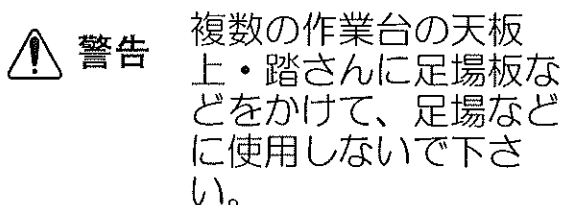 警告
複数の作業台の天板
上・踏さんに足場板な
どをかけて、足場など
に使用しないで下さ
い。